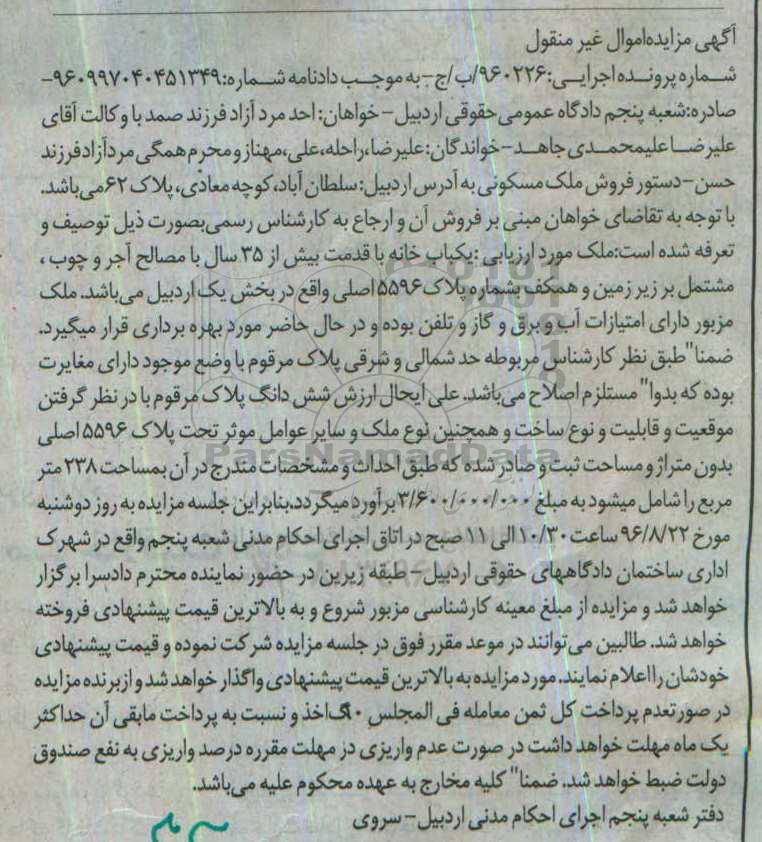 آگهی مزایده‌اموال غیر منقول
شماره پرونده اجرایی: ۹۶۰۲۲۶/ب/ج-به موجب دادنامه شماره: ۹۶۰۹۹۷۰۴۰۴۵۱۳۴۹-
صادره:شعبه پنجم دادگاه عمومی‌حقوقی اردبیل-خواهان: احد مرد آزاد فرزند صمد با وکالت آقای
علیرضا علیمحمدی جاهد-خواندگان: علیرضا،راحله،علی،مهناز و محرم همگی مردآزاد فرزند
حسن-دستور فروش ملک مسکونی به آدرس اردبیل: سلطان آباد، کوچه معادی، پلاک ۶۲می‌باشد.
با توجه به تقاضای خواهان مبنی بر فروش آن و ارجاع به کارشناس رسمی‌بصورت ذیل توصیف و
تعرفه شده است:ملک مورد ارزیابی :یکباب خانه با قدمت بیش از ۳۵ سال با مصالح آجر و چوب ،
مشتمل بر زیر زمین و همکف بشماره پلاک ۵۵۹۶ اصلی واقع در بخش یک اردبیل می‌باشد. ملک
مزبور دارای امتیازات آب و برق و گاز و تلفن بوده و در حال حاضر مورد بهره برداری قرار میگیرد.
ضمنا"طبق نظر کارشناس مربوطه حد شمالی و شرقی پلاک مرقوم با وضع موجود دارای مغایرت
بوده که بدوا" مستلزم اصلاح می‌باشد. علی ایحال ارزش شش دانگ پلاک مرقوم با در نظر گرفتن
موقعیت و قابلیت و نوع ساخت و همچنین نوع ملک و سایر عوامل موثر تحت پلاک ۵۵۹۶ اصلی
بدون متراژ و مساحت ثبت و صادر شده که طبق احداث و مشخصات مندرج در آن بمساحت ۲۳۸ متر
مربع را شامل میشود به مبلغ ۳/۶۰۰/۰۰۰/۰۰۰ برآورد میگردد.بنابراین جلسه مزایده به روز دوشنبه
مورخ ۹۶/۸/۲۲ ساعت ۱۰/۳۰ الی ۱۱ صبح در اتاق اجرای احکام مدنی شعبه پنجم واقع در شهرک
اداری ساختمان دادگاههای حقوقی اردبیل- طبقه زیرین در حضور نماینده محترم دادسرا برگزار
خواهد شد و مزایده از مبلغ معینه کارشناسی مزبور شروع و به بالاترین قیمت پیشنهادی فروخته
خواهد شد. طالبین می‌توانند در موعد مقرر فوق در جلسه مزایده شرکت نموده و قیمت پیشنهادی
خودشان را اعلام نمایند. مورد مزایده به بالاترین قیمت پیشنهادی واگذار خواهد شد و از برنده مزایده
در صورتعدم پرداخت کل ثمن معامله فی المجلس ۱۰ اخذ و نسبت به پرداخت مابقی آن حداکثر
یک ماه مهلت خواهد داشت در صورت عدم واریزی در مهلت مقرره درصد واریزی به نفع صندوق
دولت ضبط خواهد شد. ضمنا" کلیه مخارج به عهده محکوم علیه می‌باشد.
دفتر شعبه پنجم اجرای احکام مدنی اردبیل- سروی
ParsNamadData